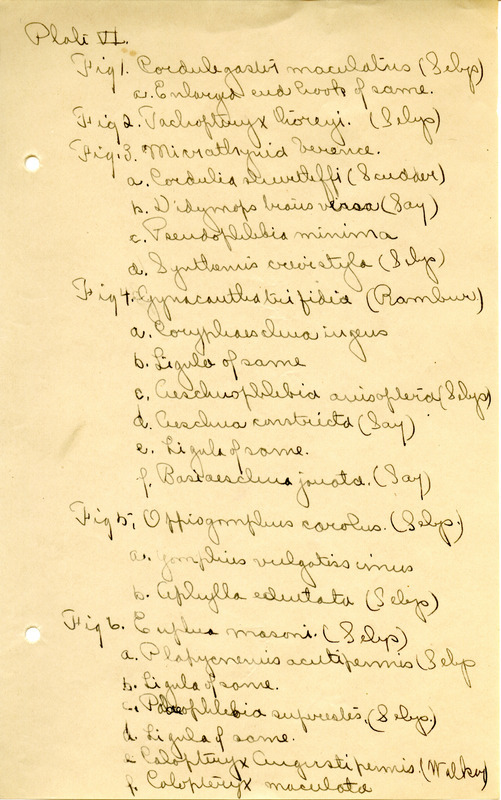 Plate VI.
Fig 1. Cordulegaster maculatus (Selys)
a. Enlarged end hook of same.
Fig 2. Tachopteryx thoreyi. (Selys)
Fig. 3. Micrathyria berenice.
a. Cordulia shurtleffi (Scudder)
b. Didymops transversa (Say)
c. Pseudophlebia minima
d. Synthemis (Selys)
Fig 4. Gynacantha trifidia (Rambur)
a. Coryphaeschna ingens
b. Ligula of same
c. Aeschnophlebia anisoptera (Selys)
d. Aeschna constricta (Say)
e. Ligula of same.
f. Basiaeschna janata. (Say)
Fig 5, Ophiogomphus carolus. (Selys.)
a. Gomphus vulgatissimus
b. Aphylla edentata (Selys)
Fig 6. Euphea masoni. (Selys)
a. Platycnemis acutipennis (Selys
b. Ligula of same.
c. Palaeophlebia superstes. (Selys.)
d. Ligula of same.
e Calopteryx Angustipennis. (Walker)
f. Calopteryx maculata